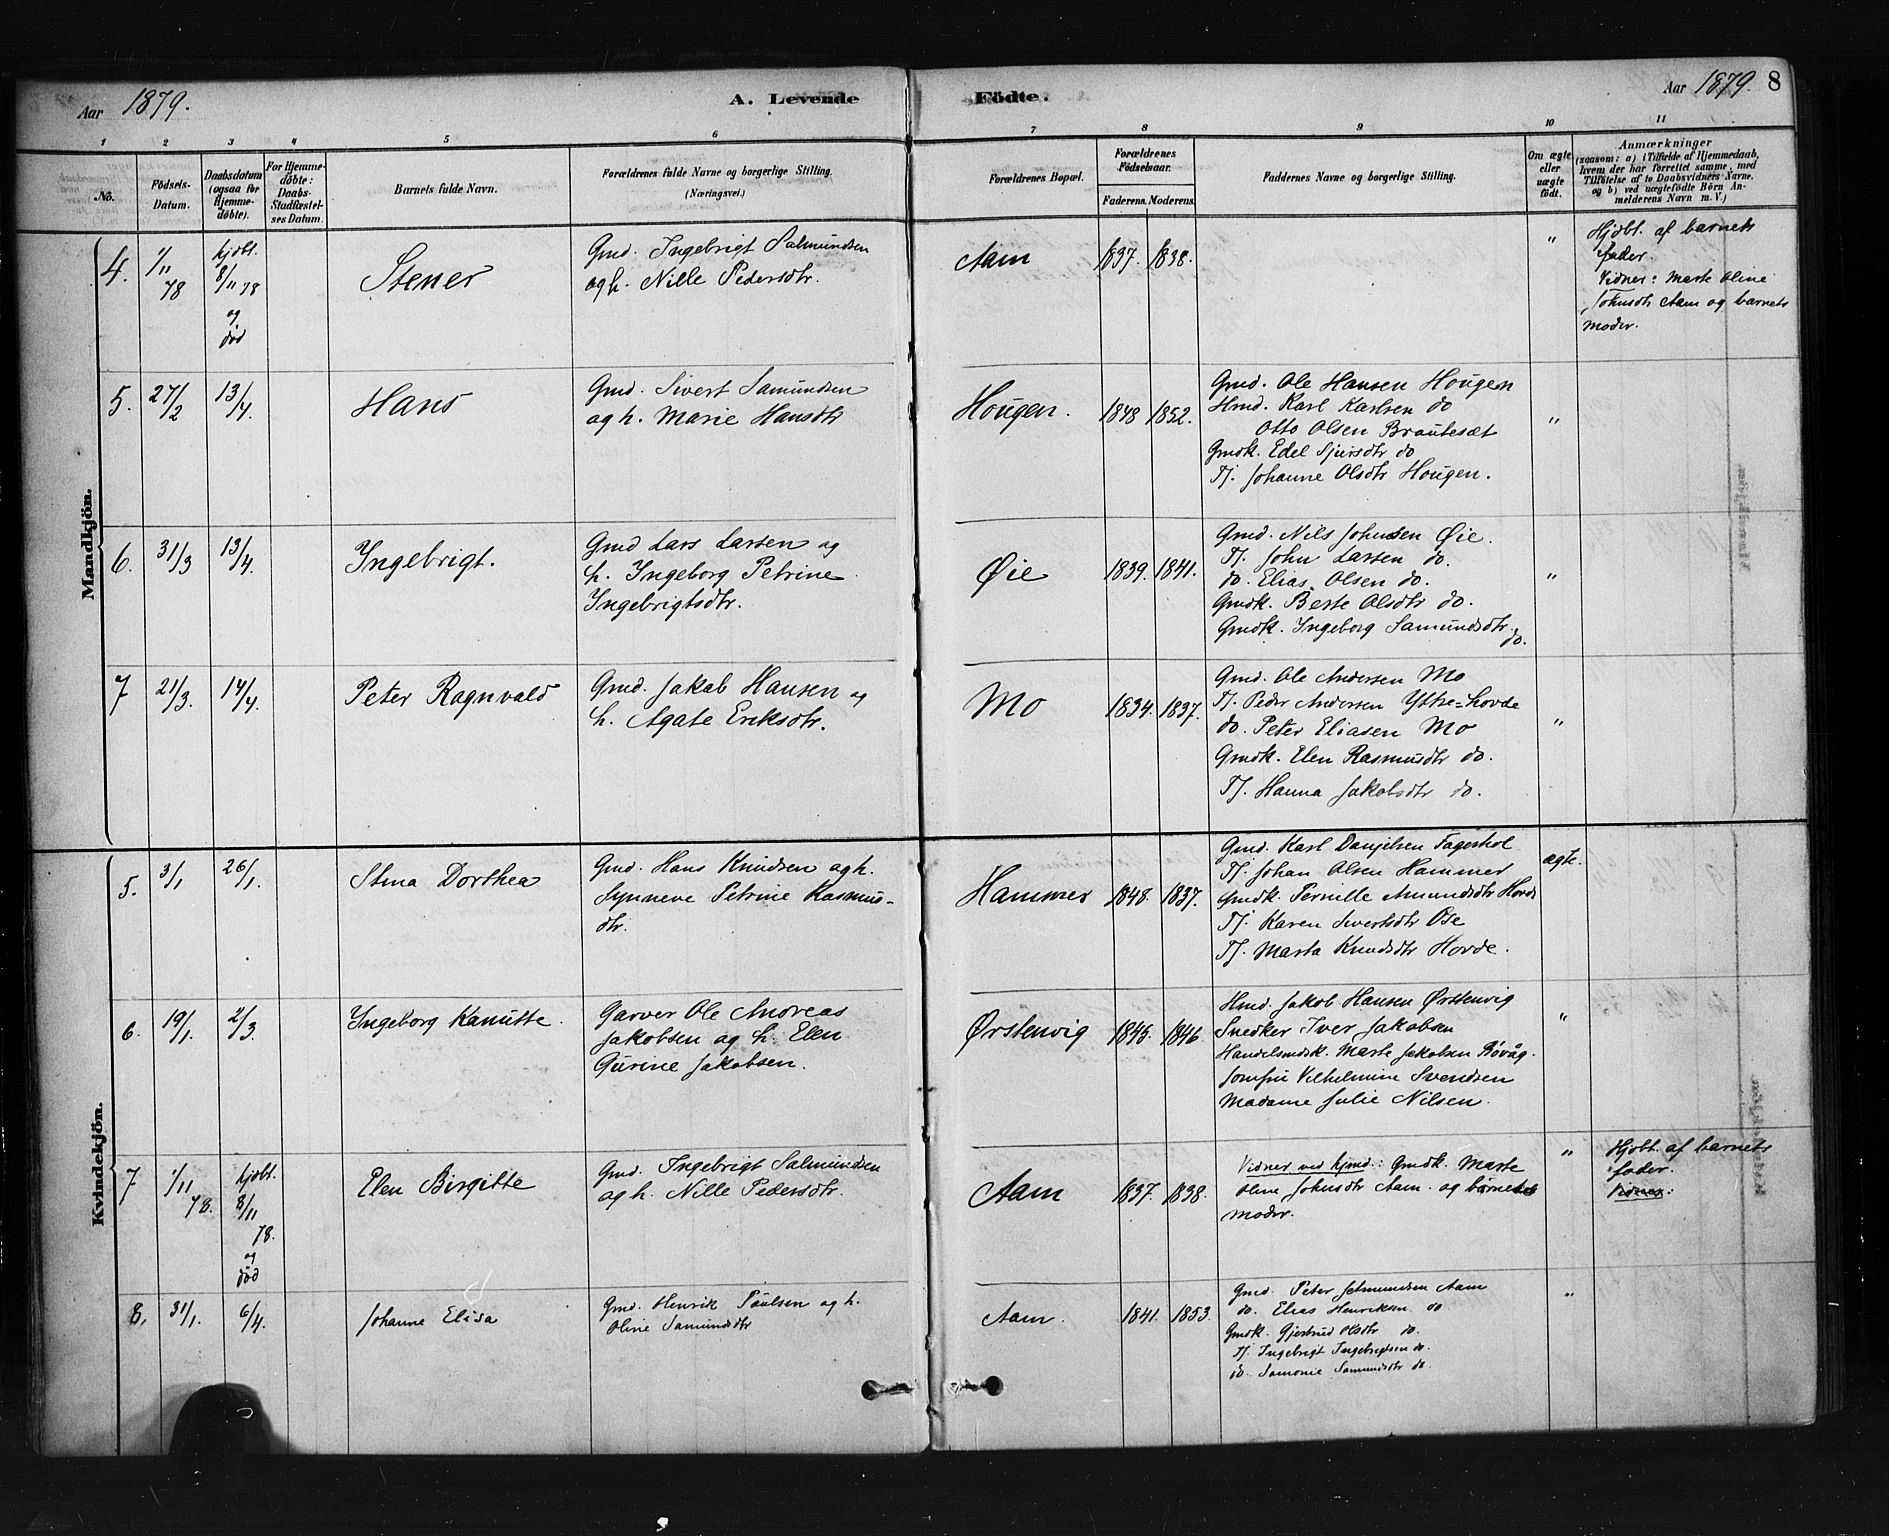 Aar 1879. A. Levende Födte. Aar 1879. 8
1 2 3 4 5 6 7 8 9 10 11
No.
Födsels-Datum.
Daabsdatum (ogsaa for Hjemme-döbte).
For Hjemme-döbte: Daabs-Stadfæstel-ses Datum.
Barnets fulde Navn.
Forældrenes fulde Navne og borgerlige Stilling. (Næringsvei.)
Forældrenes Bopæl.
Forældrenes Födselsaar.
Faderens. Moderens.
Faddernes Navne og borgerlige Stilling.
Om ægte eller uægte födt.
Anmærkninger
(saasom: a) i Tilfælde af Hjemmedaab,
hvem der har forrettet samme, med
Tilföielse af to Daabsvidners Navne,
og b) ved uægtefödte Börn An-
melderens Navn m. V.)
Mandkjön.
4. 1/11 78
hjdbt. 8/11 78 og død
Stener
Gmd. Ingebrigt Salmundsen
og h. Nille Pedersdtr.
Aam 1837. 1838. "
Hjdbt. af barnets
fader.
Vidner: Marte Oline
Johnsdtr Aam og barnets
moder.
5. 27/2 13/4.
Hans
Gmd. Sivert Samundsen
og h. Marie Hansdtr
Hougen. 1848 1852.
Gmd. Ole Hansen Hougen
Hmd. Karl Karlsen do
Otto Olsen Brautesæt
Gmdk. Edel Sjursdtr do
Tj. Johanne Olsdtr Hougen.
"
6. 31/3 13/4.
Ingebrigt.
Gmd Lars Larsen og
h. Ingeborg Petrine
Ingebrigtsdtr.
Øie 1839. 1841.
Gmd. Nils Johnsen Øie.
Tj. John Larsen do.
do. Elias Olsen do.
Gmdk. Berte Olsdtr do.
Gmdk. Ingeborg Samundsdtr do.
"
7 21/3. 14/4.
Peter Ragnvald
Gmd. Jakob Hansen og
h. Agate Eriksdtr.
Mo 1834. 1837.
Gmd. Ole Andersen Mo
Tj. Peder Andersen Ytre=hovde
do. Peter Eliasen Mo
Gmdk. Elen Rasmusdtr do.
Tj. Hanna Jakobsdtr do.
"
Kvindekjön.
5. 3/1 26/1.
Stina Dorthea
Gmd. Hans Knudsen og h.
Synneve Petrine Rasmus-
dtr.
Hammer 1848. 1837.
Gmd. Karl Danjelsen Fagerhol
Tj. Johan Olsen Hammer
Gmdk. Pernille Amundsdtr Hovde
Tj. Karen Sivertsdtr Øie
Tj. Marta Knudsdtr Hovde.
ægte.
6. 19/1. 2/3.
Ingeborg Kanutte.
Garver Ole Andreas
Jakobsen og h. Elen
Gurine Jakobsen.
Ørstenvig 1845. 1846.
Hmd. Jakob Hansen Ørstenvig
Snedker Iver Jakobsen
Handelsmdsk. Marte Jakobsen Røvåg.
Jomfru Vilhelmine Svendsen
Madame Julie Nilsen.
"
7 1/11 78.
hjdbt. 8/11 78. og død
Elen Birgitte
Gmd. Ingebrigt Salmundsen
og h. Nille Pedersdtr.
Aam 1837. 1838.
Vidner ved hjmd.: Gmdk. Marte
Oline Johnsdtr Aam. og barnets
moder.
"
Hjdbt. af barnets
fader.
Vidner:
8. 31/1. 6/4.
Johanne Elisa
Gmd. Henrik Paulsen og h.
Oline Samundsdtr
Aam. 1841. 1853.
Gmd. Peter Aam
do. Elias Henriksen do
Gmdk. Gjertrud Olsdtr do.
Tj. Ingebrigt Ingebrigtsen do.
do. Samonie Samundsdtr do.
"